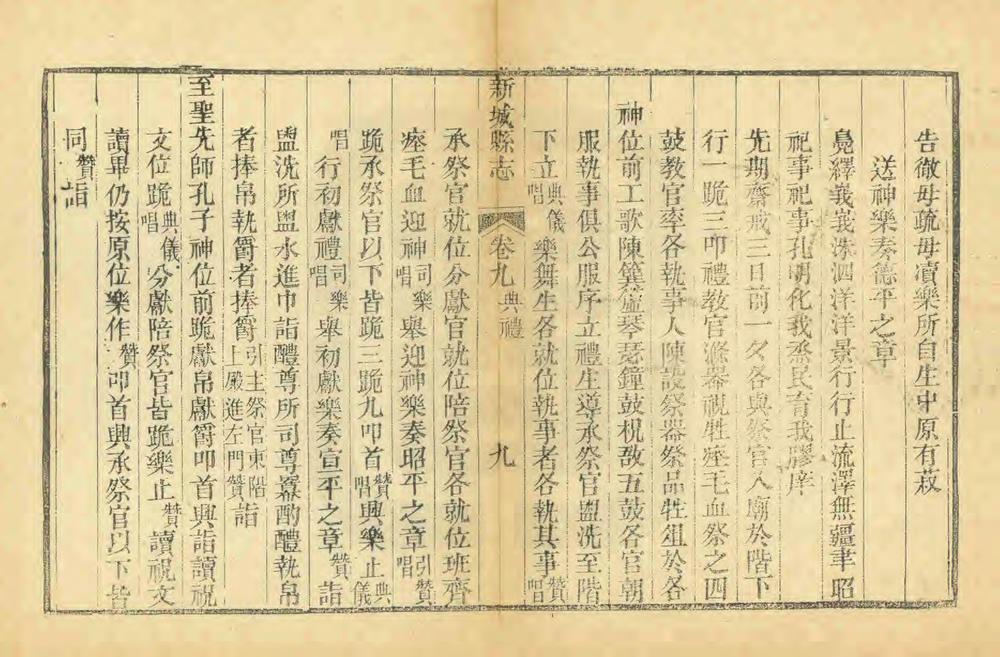 告徹毋疏毋瀆樂所自生中原有菽
送神樂奏德平之章
鳧繹義義洙泗洋洋景行行止流澤無疆聿昭
祀事祀事孔明化我烝民育我膠庠
先期齋戒三日前一夕各與祭官入廟於階下
行一跪三叩禮教官滌器視牲瘞毛血祭之四
鼓教官率各執事人陳設祭器祭品牲俎於各
神位前工歌陳簨簴琴瑟鐘鼓柷敔五鼓各官朝
服執事俱公服序立禮生導承祭官盥洗至階
下立典儀唱樂舞生各就位執事者各執其事贊唱
新城縣志 卷九 典禮 九
承祭官就位分獻官就位陪祭官各就位班齊
瘞毛血迎神司樂唱舉迎神樂奏昭平之章引贊唱
跪承祭官以下皆跪三跪九叩首贊唱興樂止典儀
唱行初獻禮司樂唱舉初獻樂奏宣平之章贊詣
盥洗所盥水進巾詣醴尊所司尊羃酌醴執帛
者捧帛執爵者捧爵引主祭官東階上殿進左門贊詣
至聖先師孔子神位前跪獻帛獻爵叩首興詣讀祝
文位跪典儀唱分獻陪祭官皆跪樂止贊讀祝文
讀畢仍按原位樂作贊叩首興承祭官以下皆
同贊詣